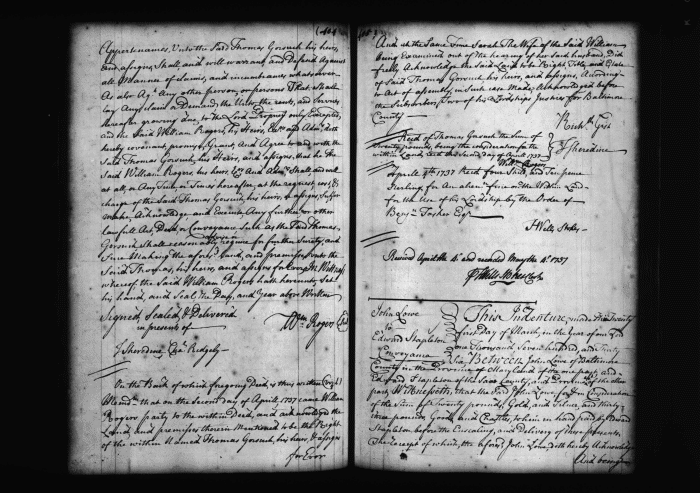 Appertenances, Unto the Said Thomas Gorsuch his heirs,
and assigns, Shall, and will warrant, and Defend Against
all Manner of and incumbrances whatsoever
As also Agt Any other person, or persons That shall
lay Any Claim, or Demand, the the rents, and Services
hereafter growing due, to the Lord Propriy only Excepted,
and the Said William Rogers, his Heirs, and Admrs doth
hereby covenant, promise, Grant, and Agree to and with the
Said Thomas Gorsuch, his Heirs, and assigns, that he the
Said William Rogers, his heirs, and Admrs Shall, and will
at all, or Any time, or Times hereafter, at the request, cost, &
charge of the said Thomas Gorsuch, his heirs, or assigns,
make, Acknowledge and Execute Any further or other
lawfull Act, Deed, or Conveyance Such as the Said Thomas
Gorsuch Shall reasonably require for further Surety, and
Sure Making the aforsd Land, and premises, unto the
Said Thomas, his heirs, and assigns for Ever, In Witness
whereof the Said William Rogers hath hereunto Set
his hand, and Seal the Day, and Year above Written
Signed, Sealed, & Delivered
in presents of
Wm Rogers
Sheredine Chas Ridgely
On the Back of which foregoing Deed, is thus written
Memdm that on the Second day of Aprill 1737 came William
Rogers party to the within Deed, and acknowledged the
Land, and premises therein Mentioned to be the Right
of the within Named Thomas Gorsuch, his heirs, & assigns
for Ever
And at the Same Time Sarah The Wife of the Said William
being Examined out of the hearing of her said husband, Did
freely Acknowledge the Said Land to be Right, Title, and Estate
of Said Thomas Gorsuch, his heirs, and assigns, According
to Act of assembly in such case Made, Acknowledged before
the Subscribers, Two of his Lordships Justices for Baltimore
County
Richd Gist
Sheredine
Recd of Thomas Gorsuch the Sum of
Twenty pounds, being the consideration for the
within Land, this second day of Aprill 1737
Willm Rogers
Aprill 4th 1737 Recd four Shill, and
Sterling for An alienation fine on the Within Land
for the Use of his Lordship by the Order of
Benja Tasker Esqr
Wells Stokes
Received Aprill the 4 and recorded May the 4. 1737
John Lowe
to
Edward Stapleton
Conveyance
This Indenture, made this Twenty
first Day of March, in the Year of our Lord
one Thousand, Seven hundred, and Thirty
Six Between John Lowe of Baltimore
County in the Province of Maryland of the one part, and
Edward Stapleton of the Same County, and Province of the other
part, Witnesseth, that the Said John Lowe for In Consideration
of the Sum of Twenty pounds, Gold, and Silver, and thirty
pounds Goods, and Chattles, to him in hand paid by Edward
Stapleton before the Ensealing, and delivery of these presents,
The receipt of which, the beford John Lowe, doth hereby Acknowledge
And